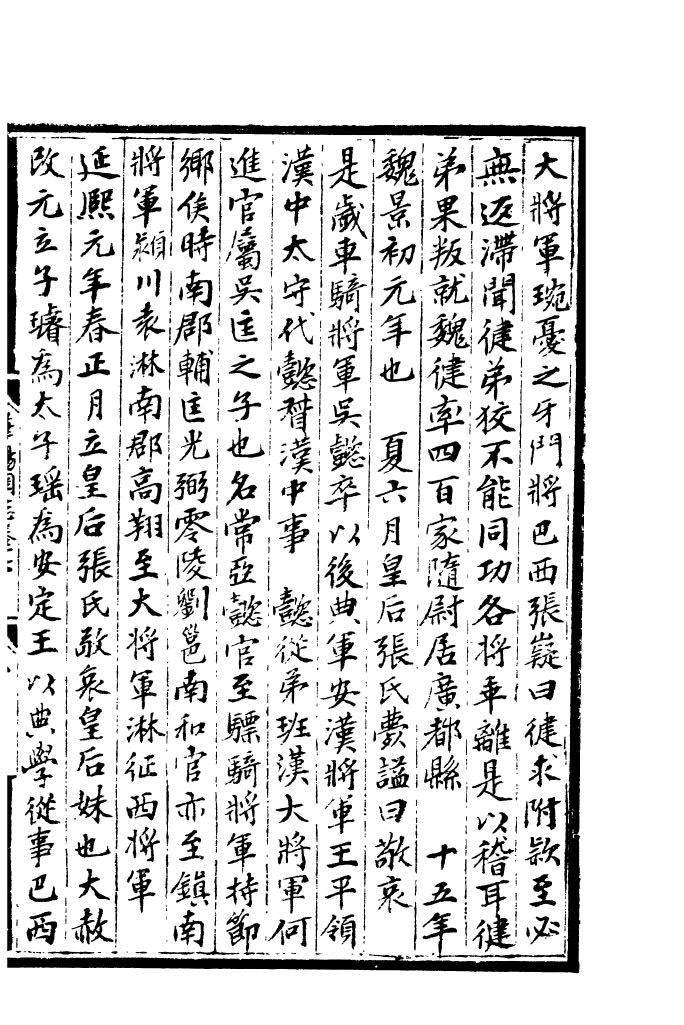 大將軍琬憂之牙門將巴西張嶷曰健求附欵至必
無返滯聞健弟狡不能同功各將乖離是以稽耳健
弟果叛就魏健率四百家隨尉居廣都縣　十五年
魏景初元年也　夏六月皇后張氏薨謚曰敬哀
是歲車騎將軍吳懿卒以後典軍安漢將軍王平領
漢中太守代懿督漢中事　懿從弟班漢大將軍何
進官屬吳匡之子也名常亞懿官至驃騎將軍持節
鄉侯時南郡輔匡光弼零陵劉邕南和官亦至鎮南
將軍潁川袁淋南郡高翔至大將軍淋征西將軍
延熙元年春正月立皇后張氏敬哀皇后妹也大赦
改元立子璿為太子瑶為安定王以典學從事巴西